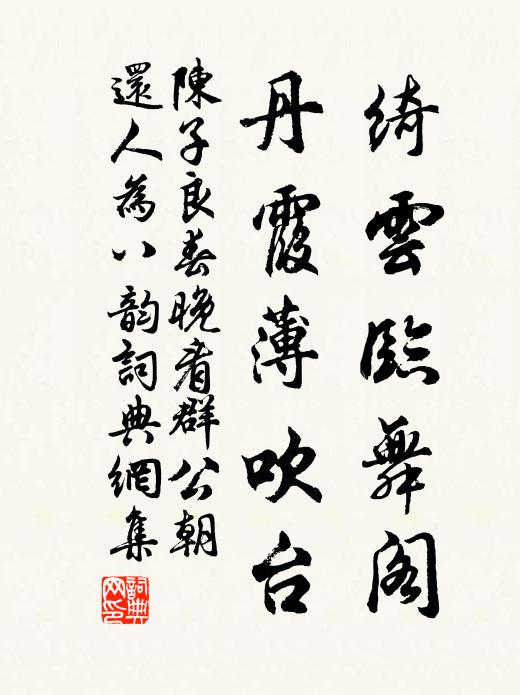 綺雲臨舞閣
丹霞薄吹台
陳子良春晚看群公朝
還人為八韵詞典網集
詞典
网印